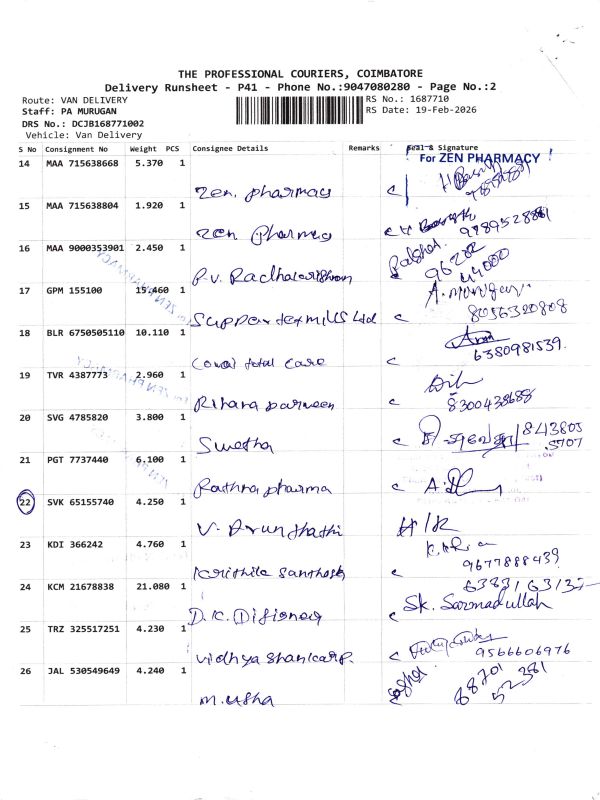 THE PROFESSIONAL COURIERS, COIMBATORE
Delivery Runsheet - P41 - Phone No.:9047080280 - Page No.:2
Route: VAN DELIVERY
RS No.: 1687710
Staff: PA MURUGAN
RS Date: 19-Feb-2026
DRS No.: DCJB168771002
Vehicle: Van Delivery
S No Consignment No Weight PCS Consignee Details Remarks Seal & Signature
For ZEN PHARMACY
14 MAA 715638668 5.370 1
Zen. pharmacy
15 MAA 715638804 1.920 1
Zen pharmacy
16 MAA 9000353901 2.450 1
96202
44000
P.V. Radhakrishnan
17 GPM 155100 15.460 1
A. Murugan
8056320808
Supper texmills Ltd
18 BLR 6750505110 10.110 1
6380981539.
Covai total care
19 TVR 4387773 2.960 1
8300438688
Rihana parveen
20 SVG 4785820 3.800 1
843805
5707
Swetha
21 PGT 7737440 6.100 1
Rathna pharma
22 SVK 65155740 4.250 1
V. Arunthathi
H/R
23 KDI 366242 4.760 1
9677888439
Krithika Santhosh
24 KCM 21678838 21.080 1
Sk. Sarmadullah
D.K. Disioneg
25 TRZ 325517251 4.230 1
9566606976
vidhya shankarp.
26 JAL 530549649 4.240 1
68701
52381
M. Usha